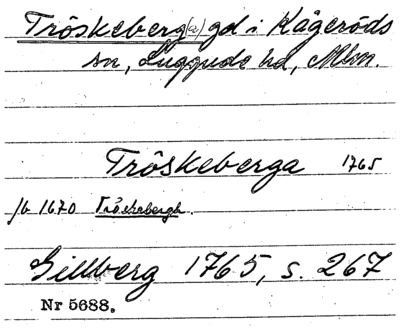 Tröskeberg(a) gd i Kågeröds
sn, Luggude hd, Mlm.
Tröskeberga 1765
jb 1670 Tröskebergh.
Gillberg 1765, s. 267
Nr 5688.